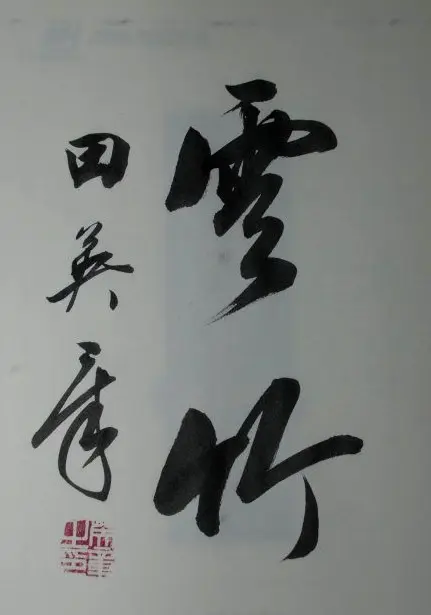 雲竹
田英章